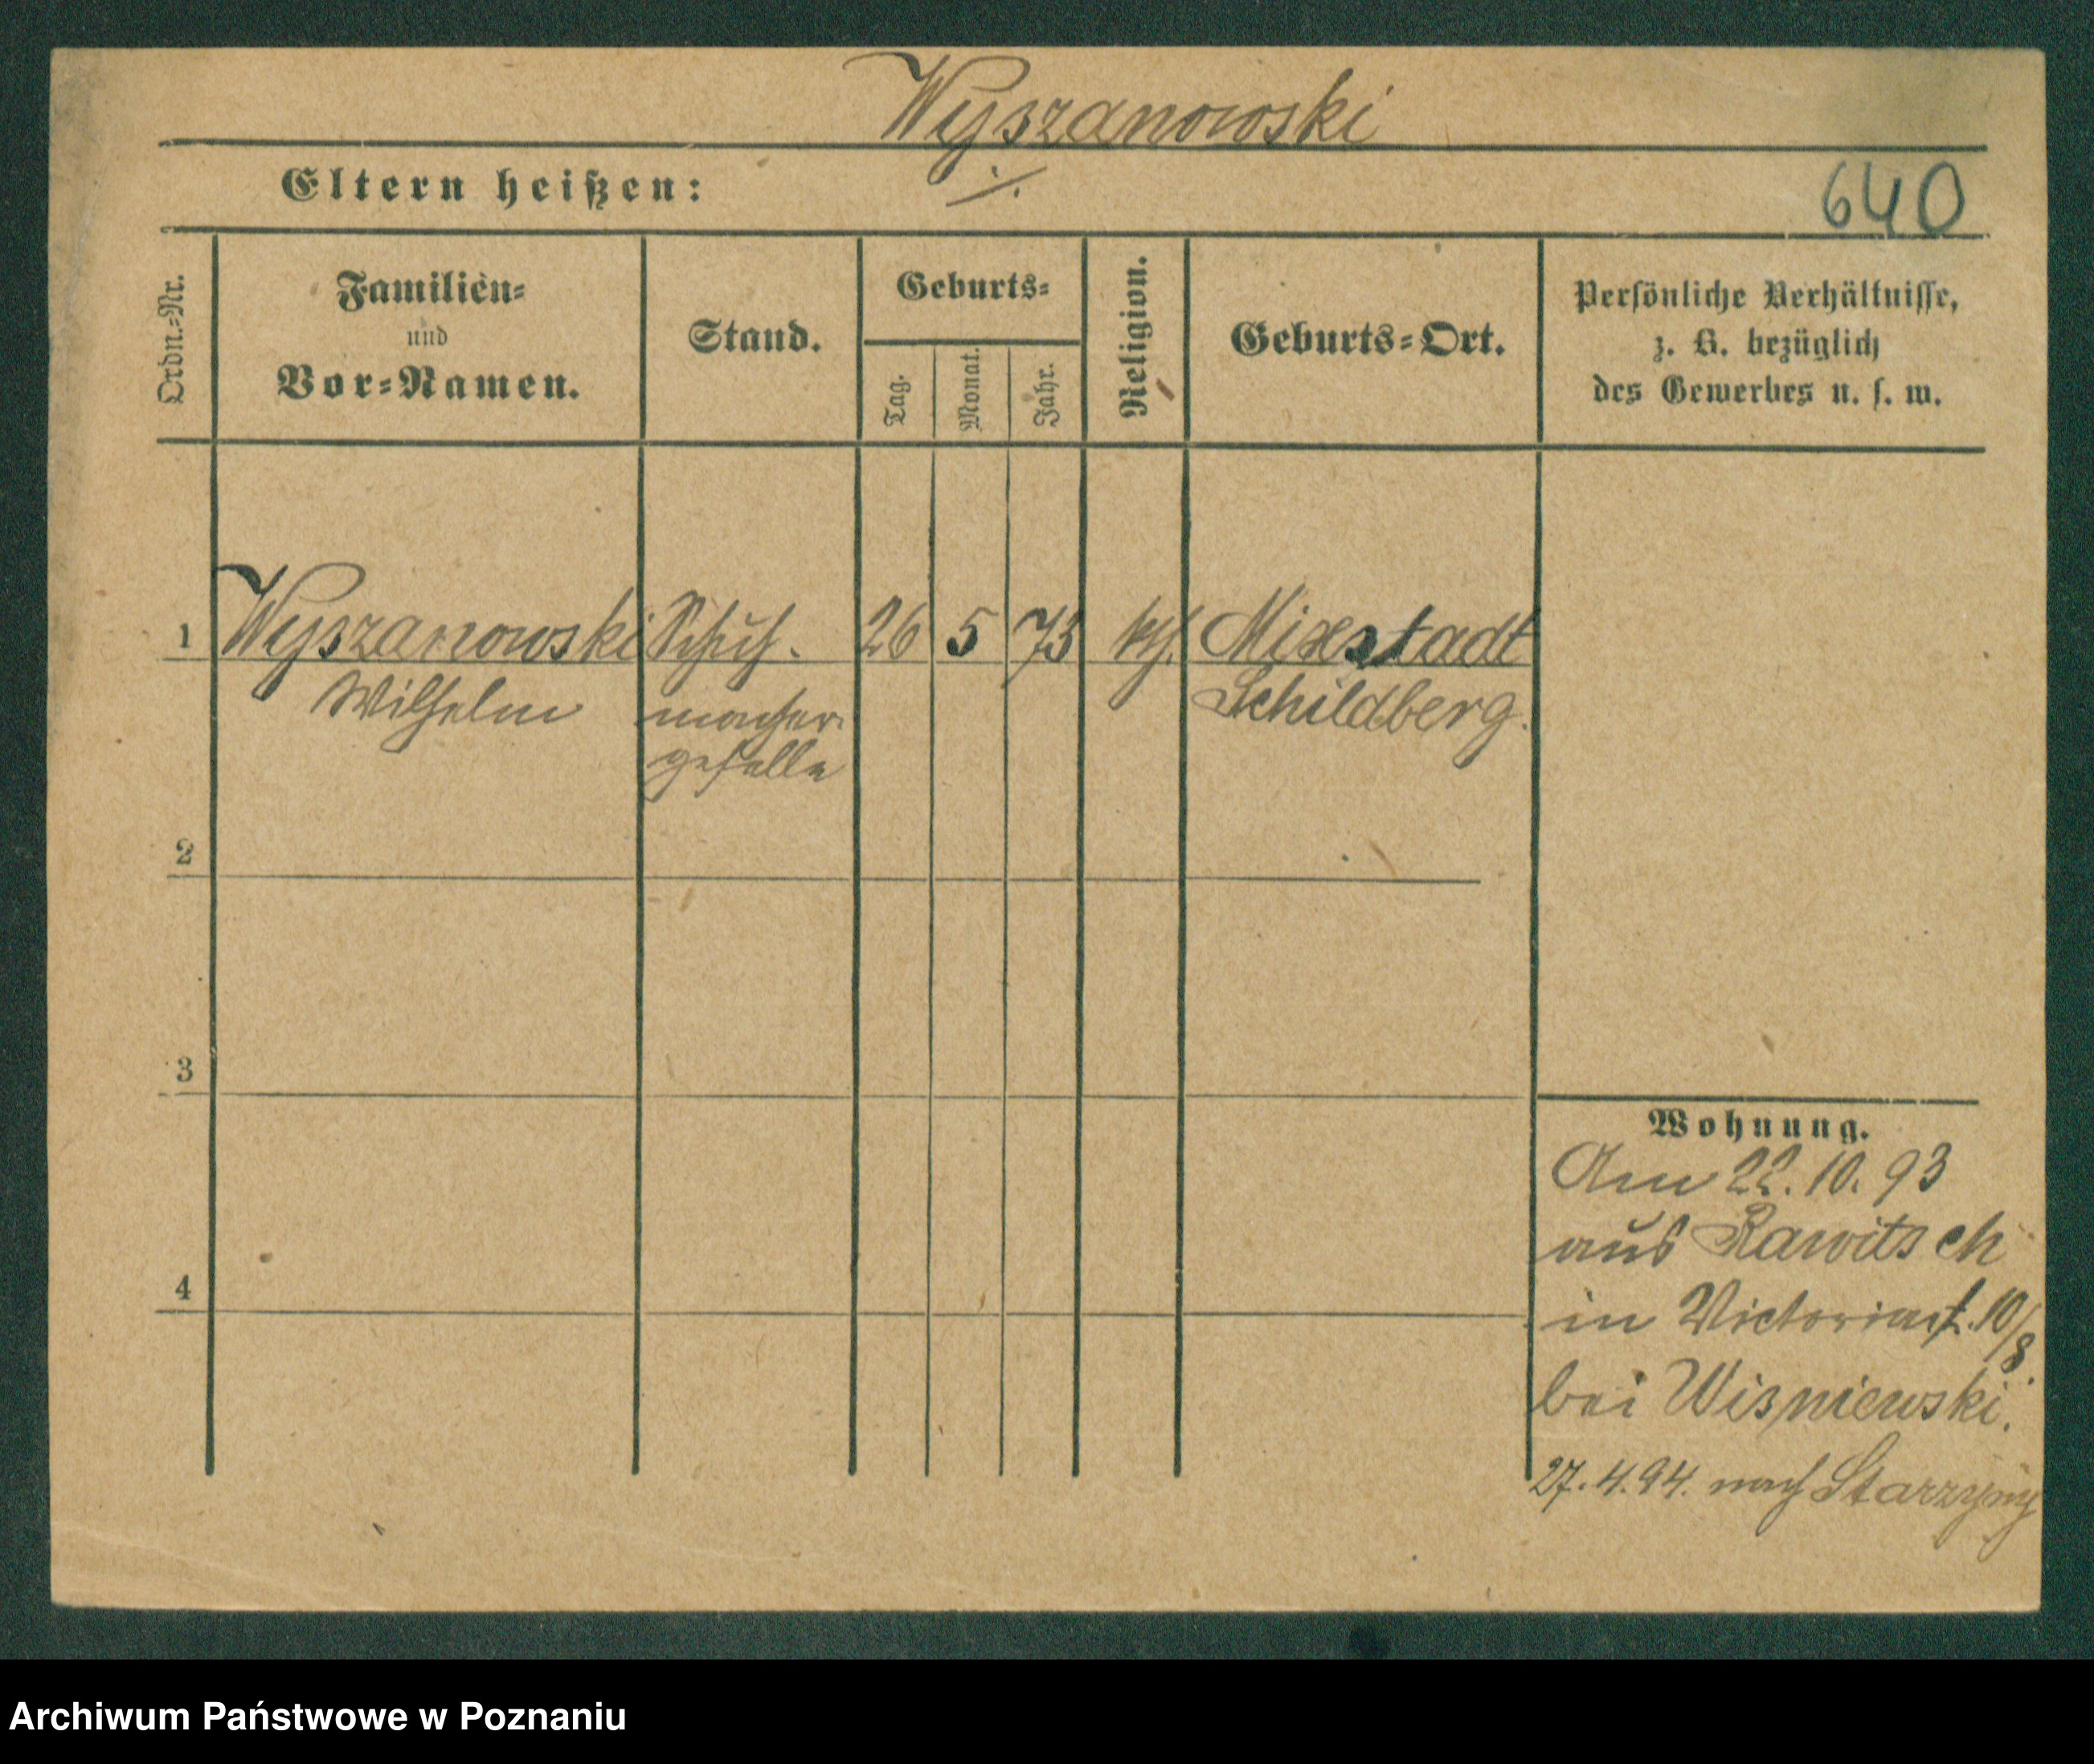 Wyszanowski
Eltern heißen: ·/.
640
Ordn.-Nr.
Familien-
und
Vor-Namen.
Stand.
Geburts-
Tag.
Monat.
Jahr.
Religion.
Geburts-Ort.
Persönliche Verhältnisse,
z. B. bezüglich
des Gewerbes u. s. w.
1 Wyszanowski Schuh- 26 5 73 kth. Mixstadt
Wilhelm macher- Schildberg.
geselle
2
3
4
Wohnung.
Am 22.10.93
aus Rawitsch
in Victoriast. 10/8
bei Wisniewski.
27.4.94. nach Starzyny
Archiwum Państwowe w Poznaniu